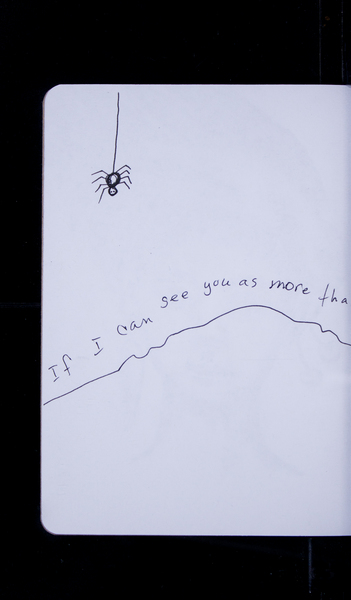 If I can see you as more tha